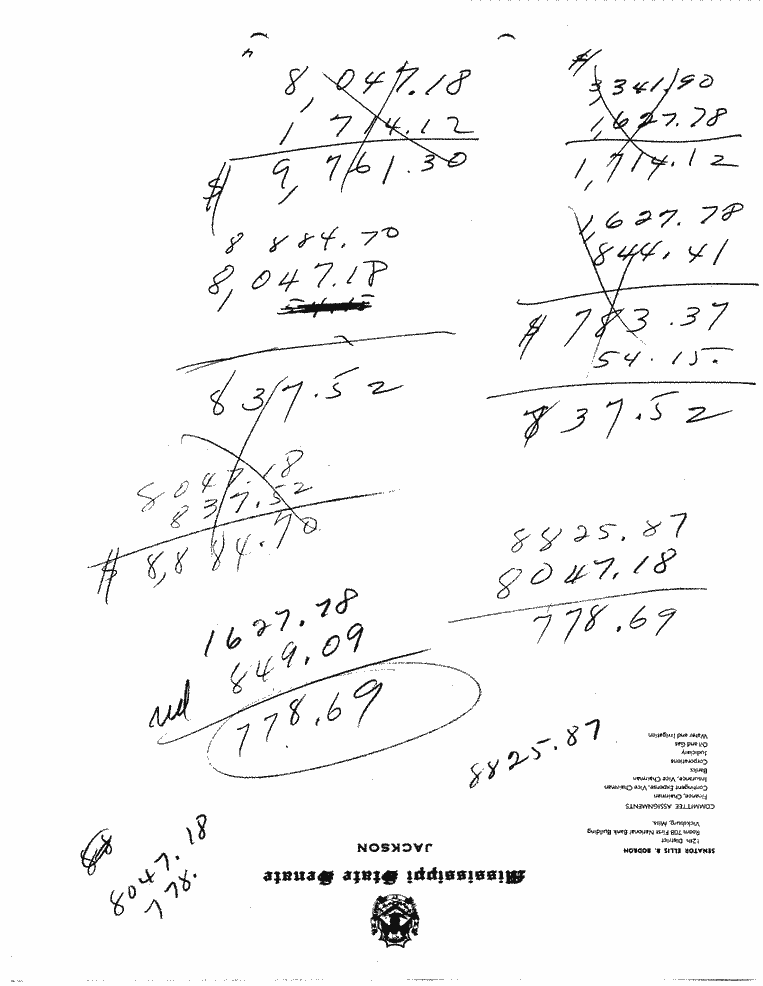 8,047.18
1 714.12
$ 9,761.30
8 884.70
8,047.18
837.52
8047.18
837.52
$ 8,884.70
1627.78
849.09
778.69
$
3,341.90
1,627.78
1,714.12
1,627.78
844.41
$ 783.37
54.15
837.52
8825.87
8047.18
778.69
8825.87
8047.18
778.
Mississippi State Senate
JACKSON
SENATOR ELLIS B. BODRON
12th District
Room 708 First National Bank Building
Vicksburg, Miss.
COMMITTEE ASSIGNMENTS
Finance, Chairman
Contingent Expense, Vice Chairman
Insurance, Vice Chairman
Banks
Corporations
Judiciary
Oil and Gas
Water and Irrigation